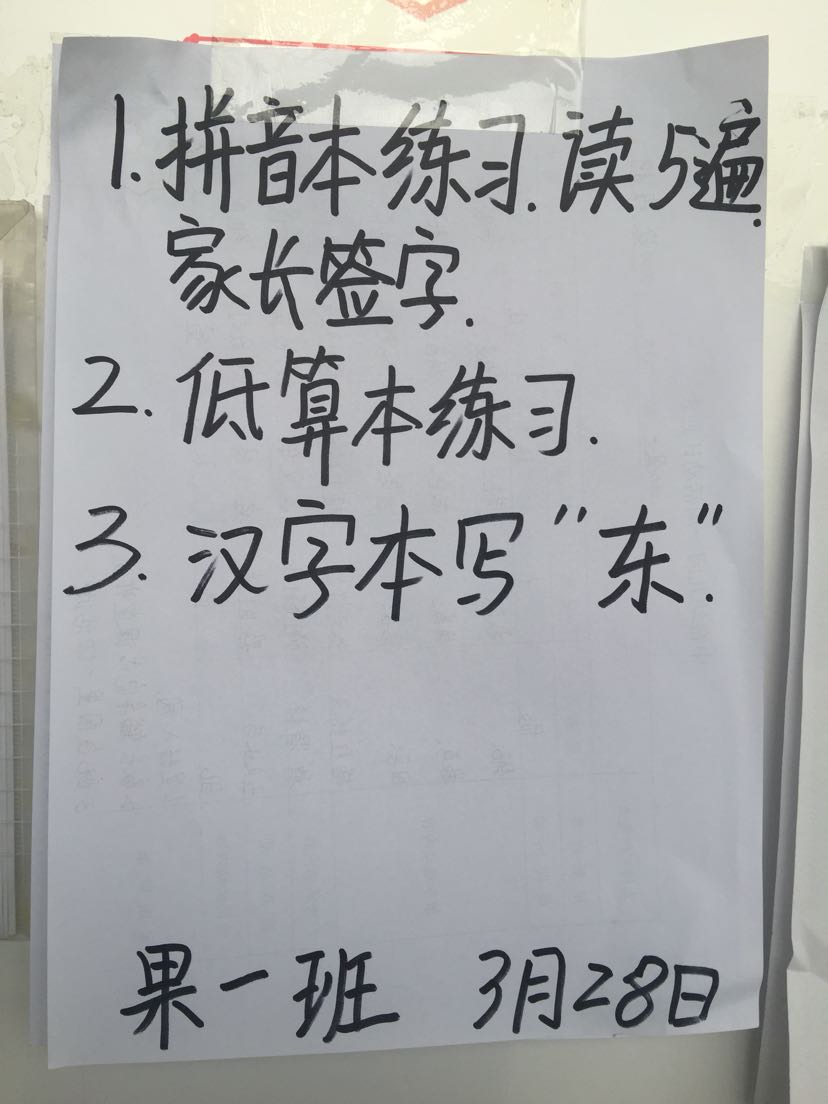 1.拼音本练习.读5遍.
家长签字.
2.低算本练习.
3.汉字本写"东".
果一班 3月28日